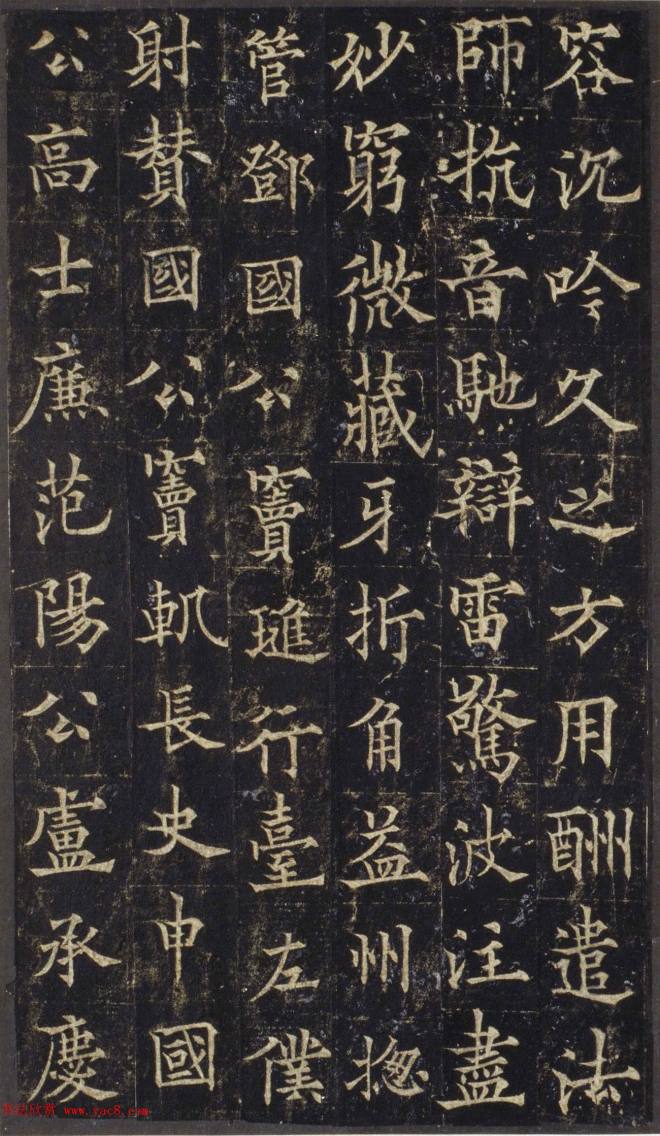 容沉吟久之方用酬遣法
師抗音馳辯雷驚波注盡
妙窮微藏牙折角益州揔
管鄧國公竇璡行臺左僕
射賛國公竇軌長史申國
公高士廉范陽公盧承慶
www.yac8.com